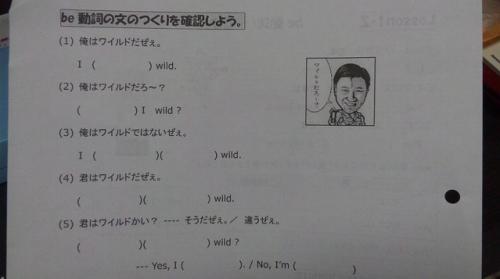 be 動詞の文のつくりを確認しよう。
(1) 俺はワイルドだぜぇ。
I (                ) wild.
(2) 俺はワイルドだろ～?
(                ) I wild ?
(3) 俺はワイルドではないぜぇ。
I (                )(                ) wild.
(4) 君はワイルドだぜぇ。
(                )(                ) wild.
(5) 君はワイルドかい? ---- そうだぜぇ。/ 違うぜぇ。
(                )(                ) wild ?
--- Yes, I (                ). / No, I'm (                )
ワイルドだろ～?